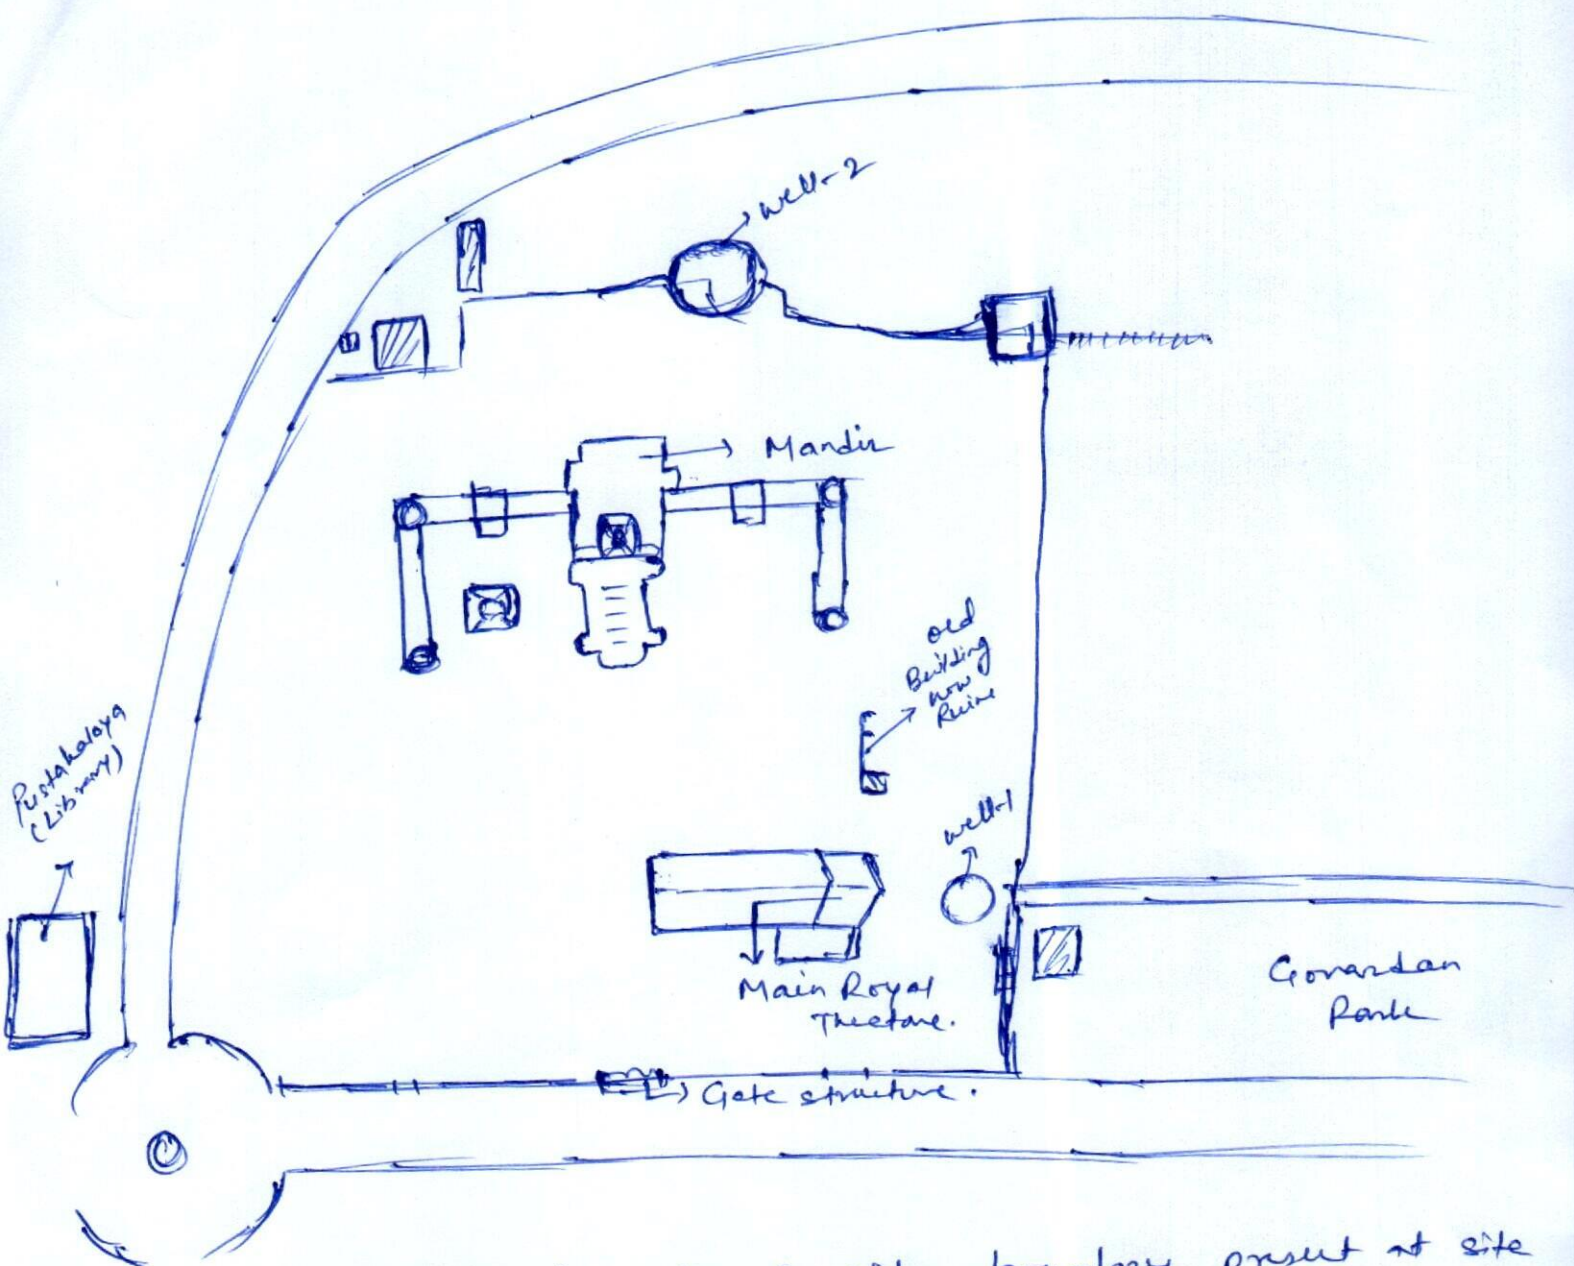 well-2
Mandir
old
Building
now
Ruine
Pustakalaya
(Library)
well-1
Main Royal
Govardan
Park
Gate structure.
boundary present at site